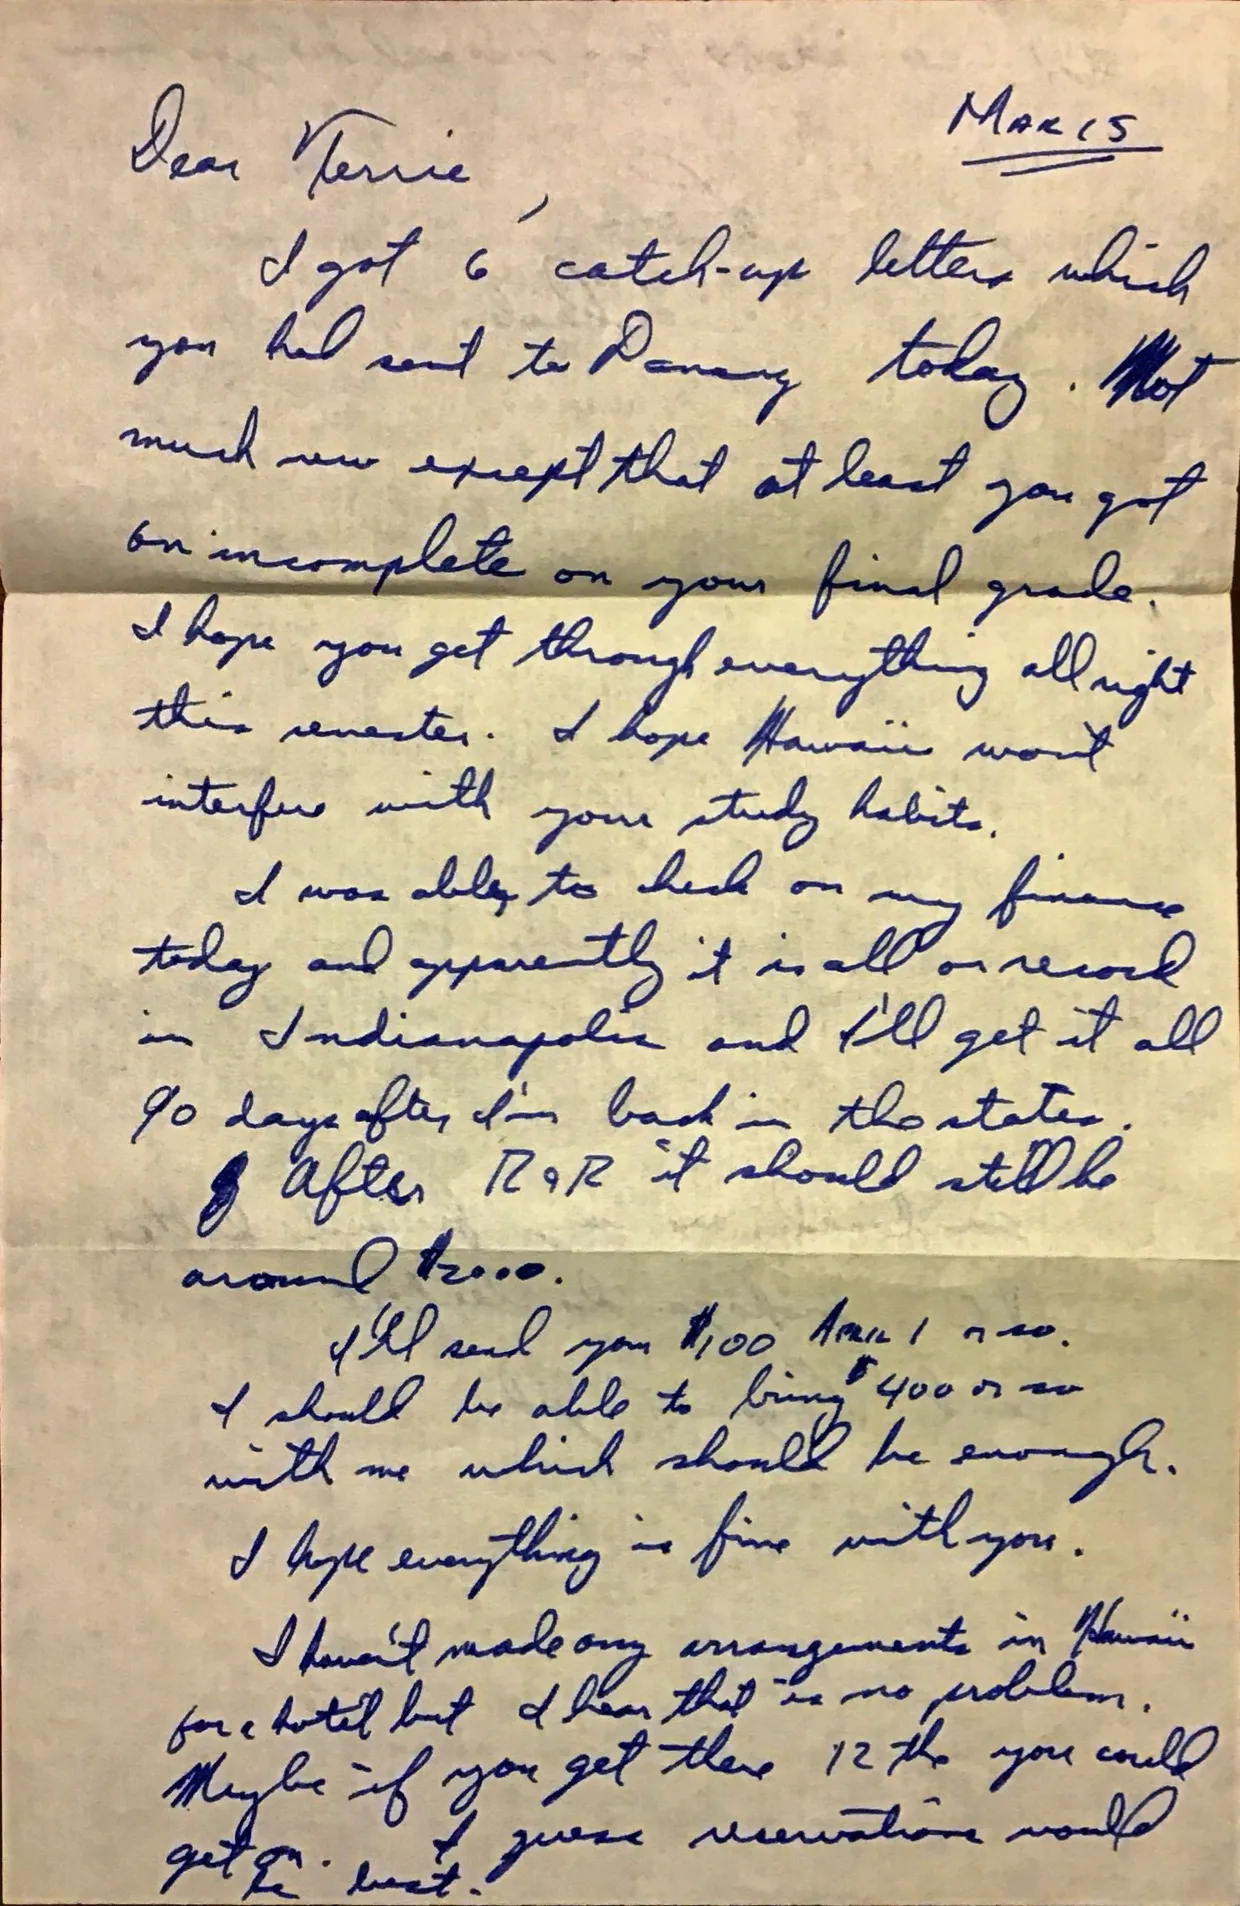 Mar 15
Dear Terrie,
I got 6 catch-up letters which
you had sent to Danang today. Not
much new except that at least you got
an incomplete on your final grade.
I hope you get through everything all right
this semester. I hope Hawaii won't
interfere with your study habits.
I was able, to check on my finance
today and apparently it is all on record
in Indianapolis and I'll get it all
90 days after I'm back in the states.
After R & R it should still be
around $2000.
I'll send you $100 April 1 or so.
I should be able to bring $400 or so
with me which should be enough.
I hope everything is fine with you.
I haven't made any arrangements in Hawaii
for a hotel but I hear that is no problem.
Maybe if you get there 12th you could
get on. I guess reservations would
be best.